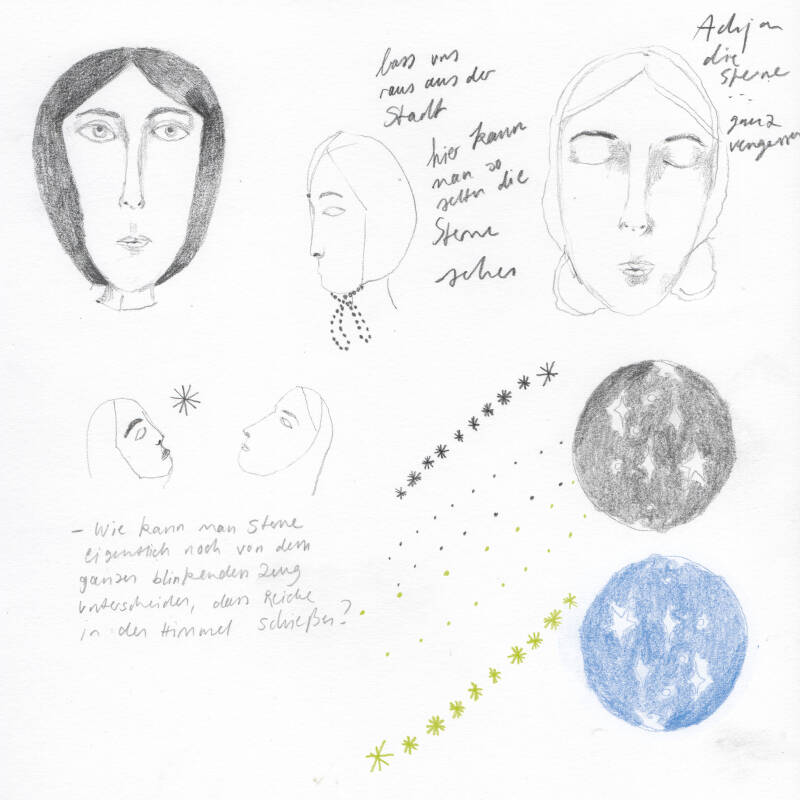 lass uns
raus aus der
Stadt
hier kann
man so
selten die
Sterne
sehen
Ach ja
die
Sterne
...
ganz
vergessen
– Wie kann man Sterne
eigentlich noch von dem
ganzen blinkenden Zeug
unterscheiden, dass Reiche
in den Himmel schießen?